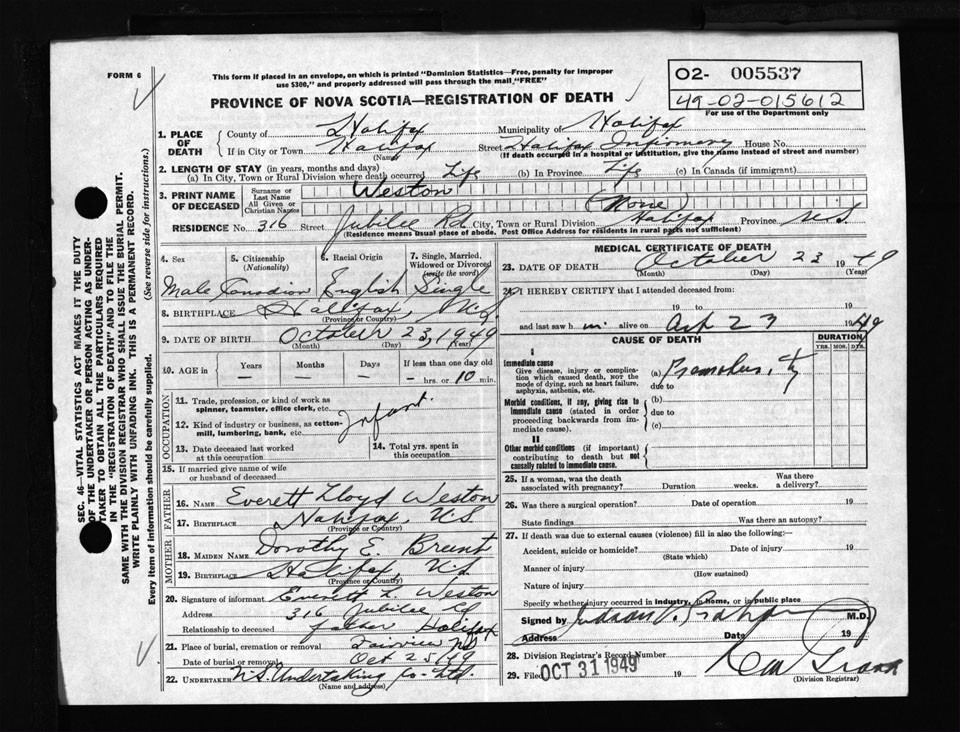 FORM 6
This form if placed in an envelope, on which is printed "Dominion Statistics—Free, penalty for improper
use $300," and properly addressed will pass through the mail "FREE"
PROVINCE OF NOVA SCOTIA—REGISTRATION OF DEATH
02- 005537
49-02-015612
For use of the Department only
1. PLACE OF DEATH
County of Halifax Municipality of Halifax
If in City or Town Halifax Street Halifax Infirmary House No.
(Name) (If death occurred in a hospital or institution, give the name instead of street and number)
2. LENGTH OF STAY (in years, months and days)
(a) In City, Town or Rural Division where death occurred Life (b) In Province Life (c) In Canada (if immigrant)
3. PRINT NAME OF DECEASED
Surname or Last Name Weston
All Given or Christian Names (None)
RESIDENCE No. 316 Street Jubilee Rd City, Town or Rural Division Halifax Province N.S.
(Residence means usual place of abode. Post Office Address for residents in rural parts not sufficient)
SEC. 46—VITAL STATISTICS ACT MAKES IT THE DUTY
OF THE UNDERTAKER OR PERSON ACTING AS UNDER-
TAKER TO OBTAIN ALL THE PARTICULARS REQUIRED
IN THE "REGISTRATION OF DEATH" AND TO FILE THE
SAME WITH THE DIVISION REGISTRAR WHO SHALL ISSUE THE BURIAL PERMIT.
WRITE PLAINLY WITH UNFADING INK. THIS IS A PERMANENT RECORD.
Every item of information should be carefully supplied. (See reverse side for instructions.)
4. Sex
Male
5. Citizenship
(Nationality)
Canadian
6. Racial Origin
English
7. Single, Married,
Widowed or Divorced
(write the word)
Single
8. BIRTHPLACE Halifax, N.S.
(Province or Country)
9. DATE OF BIRTH October 23, 1949
(Month) (Day) (Year)
10. AGE in
Years Months Days If less than one day old
— — hrs. or 10 min.
OCCUPATION
11. Trade, profession, or kind of work as
spinner, teamster, office clerk, etc.
Infant
12. Kind of industry or business, as cotton-
mill, lumbering, bank, etc.
13. Date deceased last worked
at this occupation
14. Total yrs. spent in
this occupation
15. If married give name of wife
or husband of deceased
FATHER
16. NAME Everett Lloyd Weston
17. BIRTHPLACE Halifax, N.S.
(Province or Country)
MOTHER
18. MAIDEN NAME Dorothy E. Brunt
19. BIRTHPLACE Halifax, N.S.
(Province or Country)
20. Signature of informant Everett L. Weston
Address 316 Jubilee Rd
Relationship to deceased father Halifax
21. Place of burial, cremation or removal Fairview NS
Date of burial or removal Oct 25/49
22. UNDERTAKER N.S. Undertaking Co. Ltd.
(Name and address)
MEDICAL CERTIFICATE OF DEATH
23. DATE OF DEATH October 23 1949
(Month) (Day) (Year)
24. I HEREBY CERTIFY that I attended deceased from:
19 to 19
and last saw h im alive on 23 1949
CAUSE OF DEATH
DURATION
YRS. MOS. DYS.
I
Immediate cause
Give disease, injury or complica-
tion which caused death, NOT the
mode of dying, such as heart failure,
asphyxia, asthenia, etc.
(a) Prematurity
due to
Morbid conditions, if any, giving rise to
immediate cause (stated in order
proceeding backwards from im-
mediate cause).
(b)
due to
(c)
II
Other morbid conditions (if important)
contributing to death but not
causally related to immediate cause.
25. If a woman, was the death
associated with pregnancy? Duration weeks. Was there
a delivery?
26. Was there a surgical operation? Date of operation 19
State findings Was there an autopsy?
27. If death was due to external causes (violence) fill in also the following:—
Accident, suicide or homicide? Date of injury 19
(State which)
Manner of injury
(How sustained)
Nature of injury
Specify whether injury occurred in industry, in home, or in public place
Signed by Judson V. Graham M.D.
Address Date 19
28. Division Registrar's Record Number
29. Filed OCT 31 1949 19
(Division Registrar)